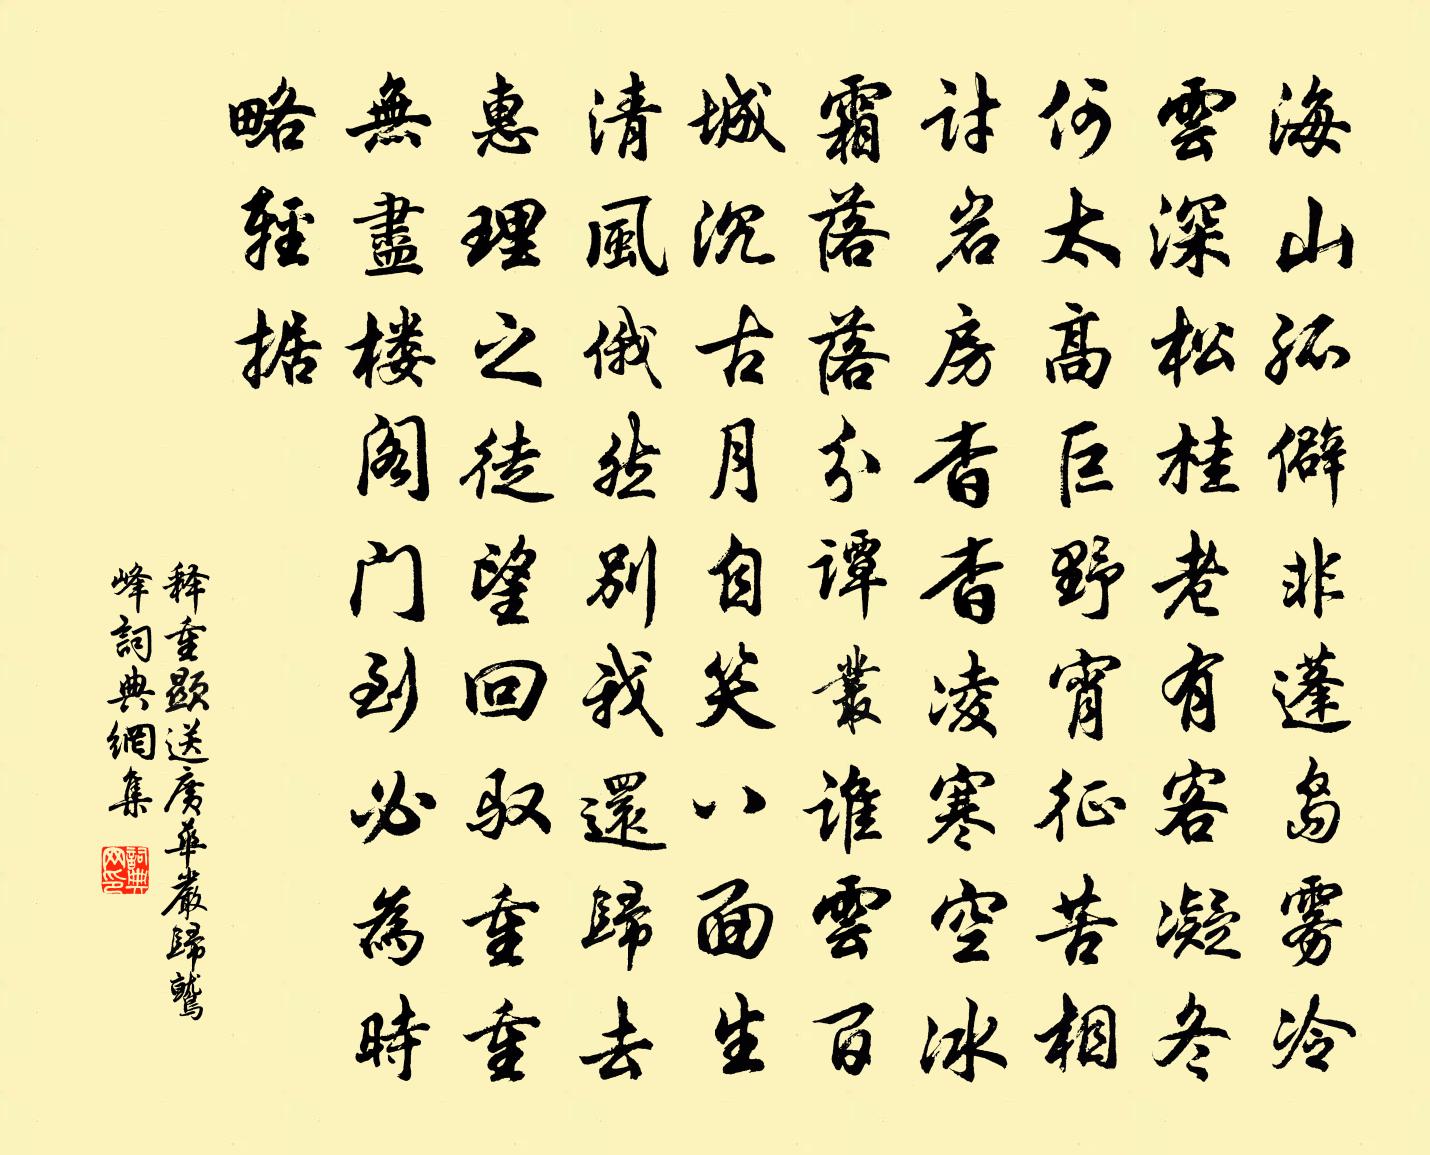 海山孤僻非蓬岛雾冷
雲深松桂老有客凝冬
何太高巨野宵征苦相
討岩房杳杳凌寒空冰
霜落落分譚叢誰雲百
城沉古月自笑八面生
清風俄然别我還歸去
惠理之徒望回驭重重
無盡楼阁门到必為時
略輕据
释重顯送廣華嚴歸鷲
峰詞典網集
詞典网印